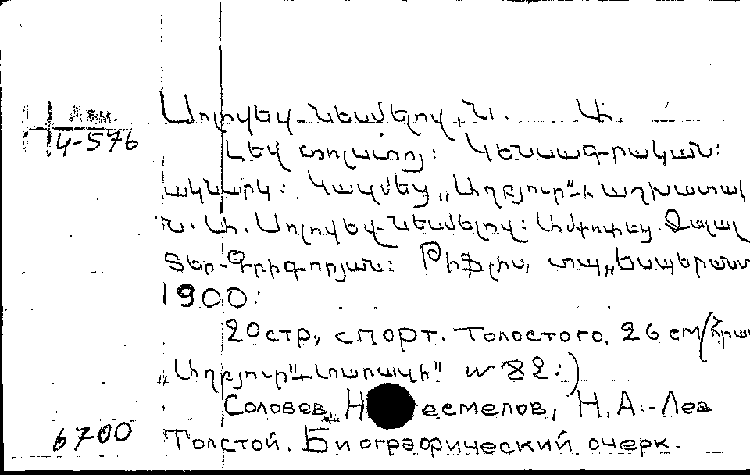 Арм.
4-576
Սոլովեվ-Նեսմելով, Ն. Ա.
Լեվ Տոլստոյ: Կենսագրական
ակնարկ: Կազմեց „Աղբյուր"-ի աշխատակ
Ն. Ա. Սոլովեվ-Նեսմելով: Փոխադ.
Տեր-Գրիգորյան: Թիֆլիս, տպ.
1900:
20 стр, с порт. Толстого, 26 см (Հրատ
„Աղբյուր"-Տարազի" № 82:)
Соловев, Н есмелов, Н. А.- Лев
6700 Толстой. Биографический очерк.